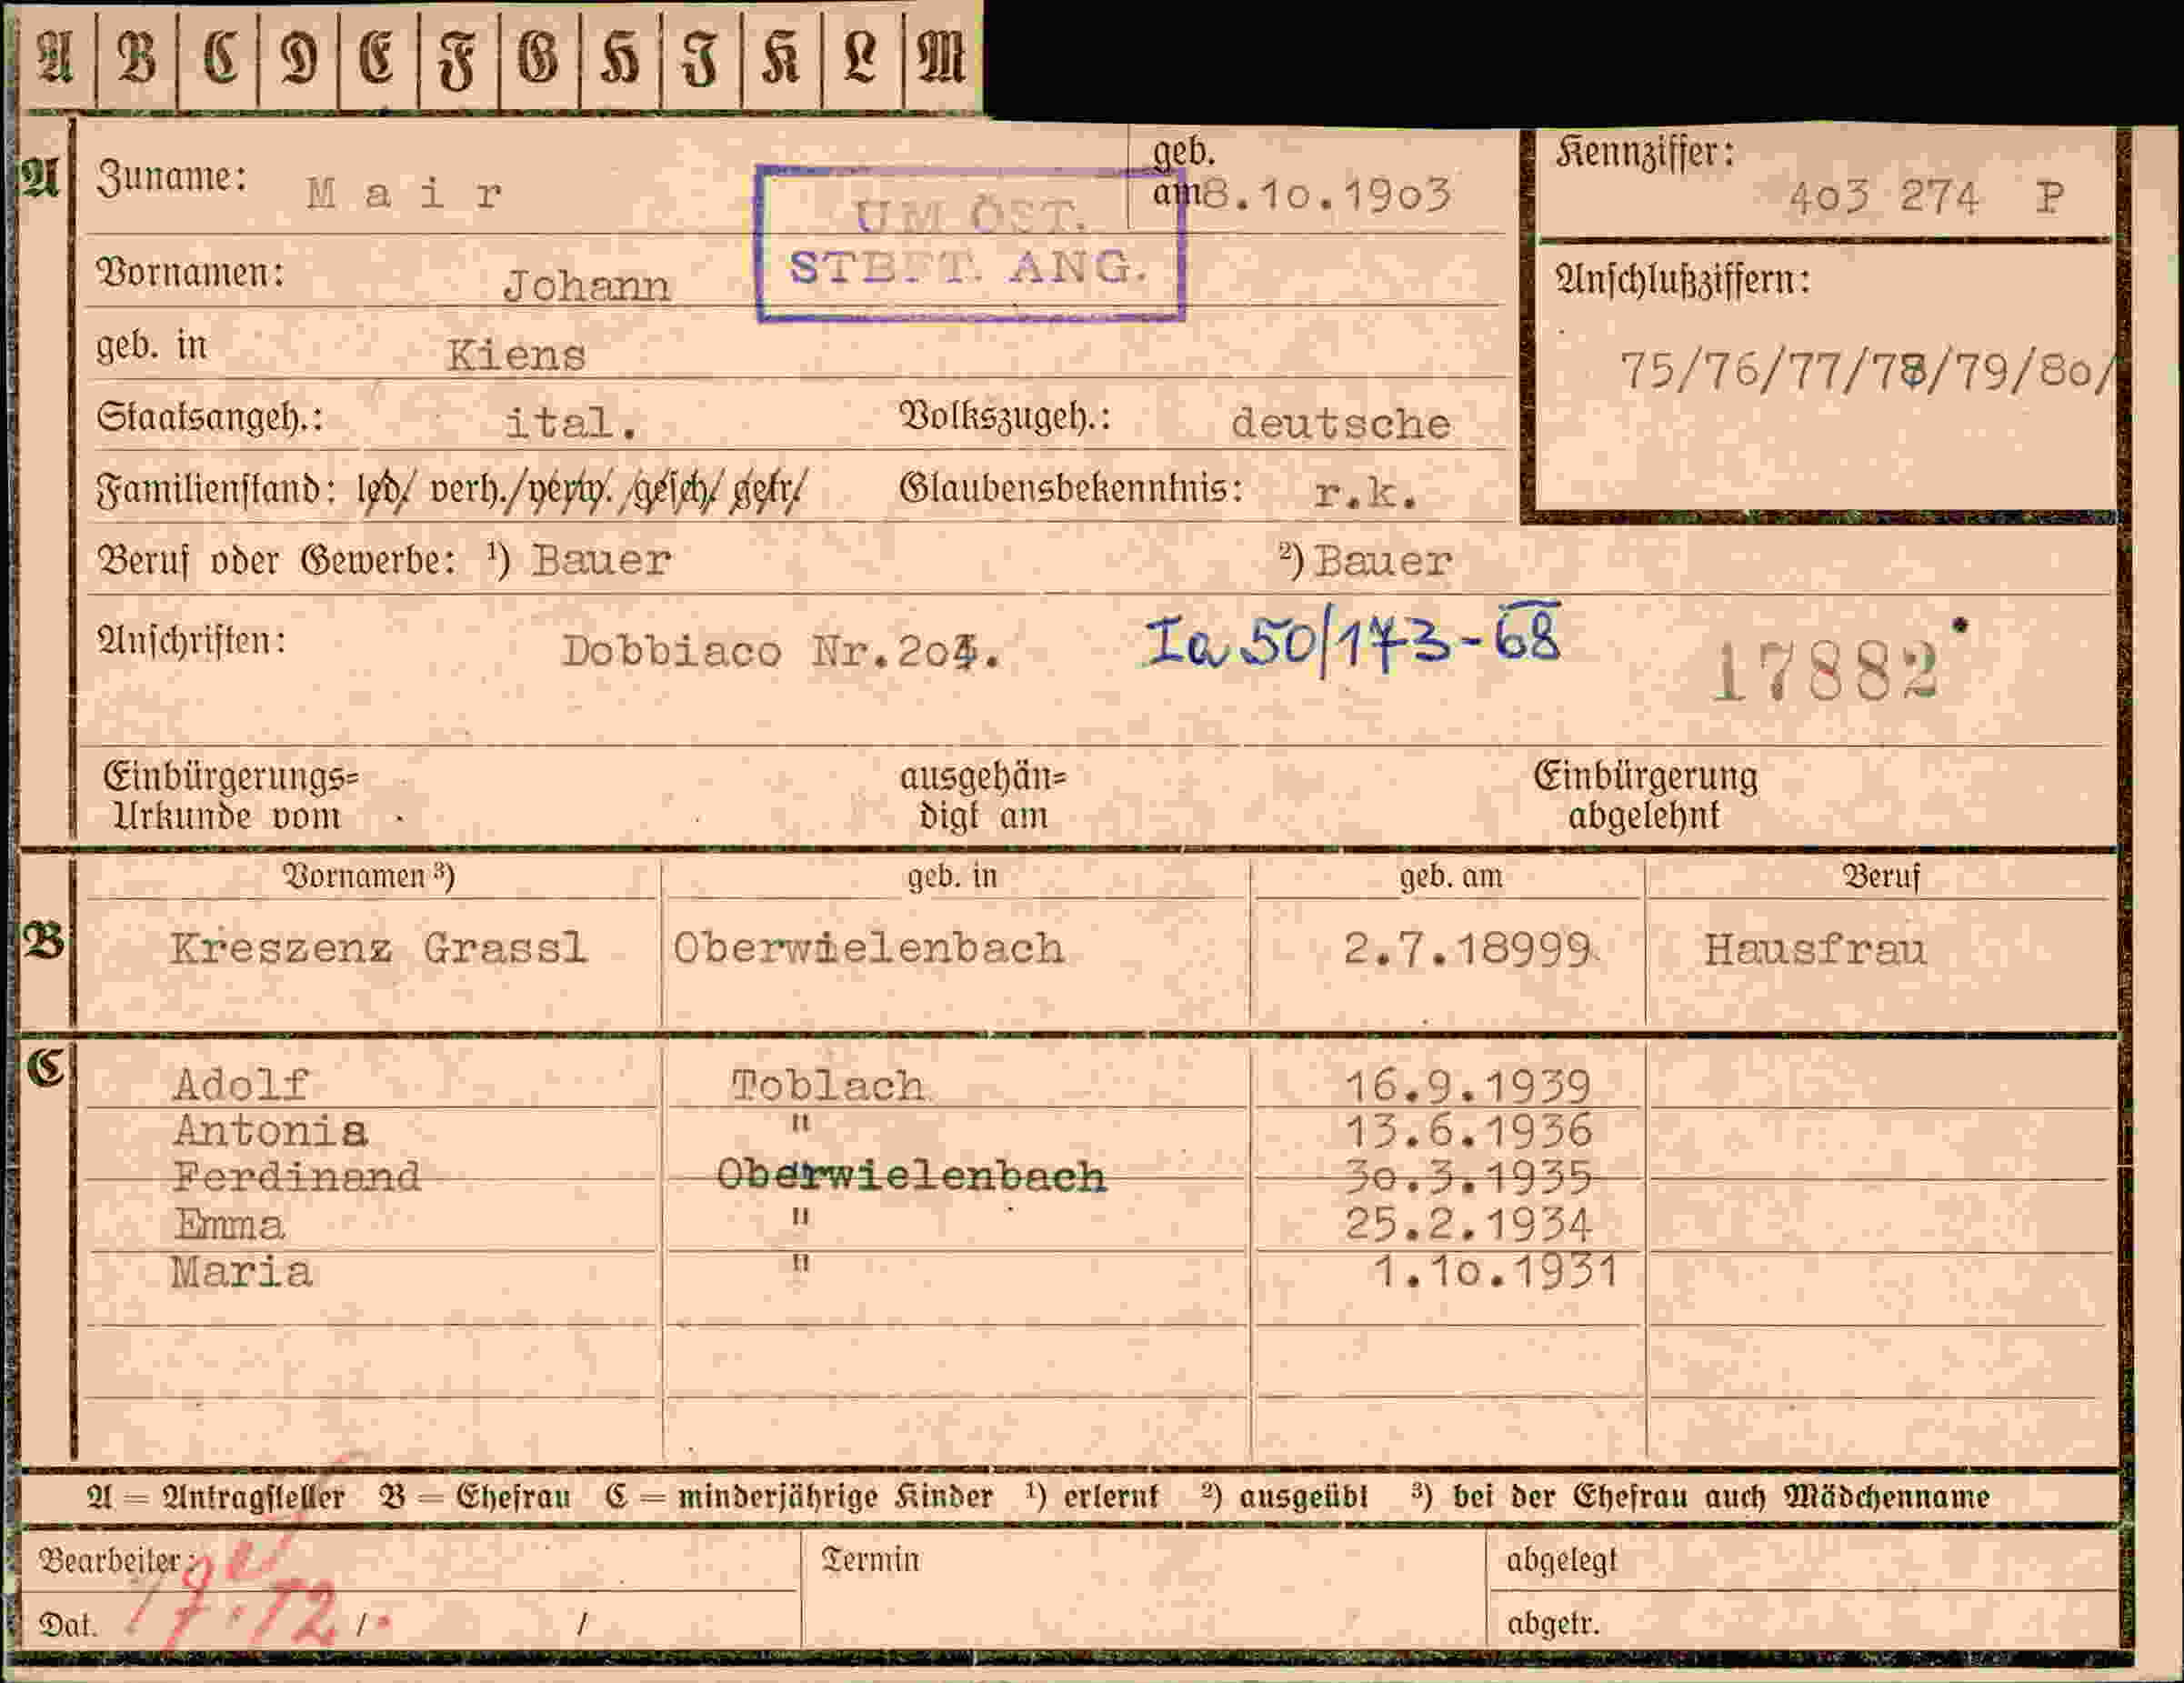 A B C D E F G H I K L M
A Zuname: Mair geb. am 8.10.1903 Kennziffer: 403 274 P
UM ÖST.
STBFT. ANG.
Vornamen: Johann Anschlußziffern:
geb. in Kiens 75/76/77/78/79/80/
Staatsangeh.: ital. Volkszugeh.: deutsche
Familienstand: led/ verh./verw./gesch/ getr/ Glaubensbekenntnis: r.k.
Beruf oder Gewerbe: ¹) Bauer ²) Bauer
Anschriften: Dobbiaco Nr. Ia 50/173-68 17882
Einbürgerungs= ausgehän= Einbürgerung
Urkunde vom digt am abgelehnt
Vornamen ³) geb. in geb. am Beruf
B Kreszenz Grassl Oberwielenbach 2.7.18999 Hausfrau
C Adolf Toblach 16.9.1939
Antonia " 13.6.1936
Ferdinand Oberwielenbach 30.3.1935
Emma " 25.2.1934
Maria " 1.10.1931
A = Antragsteller B = Ehefrau C = minderjährige Kinder ¹) erlernt ²) ausgeübt ³) bei der Ehefrau auch Mädchenname
Bearbeiter: Termin abgelegt
Dat. 17.12 /. / abgetr.